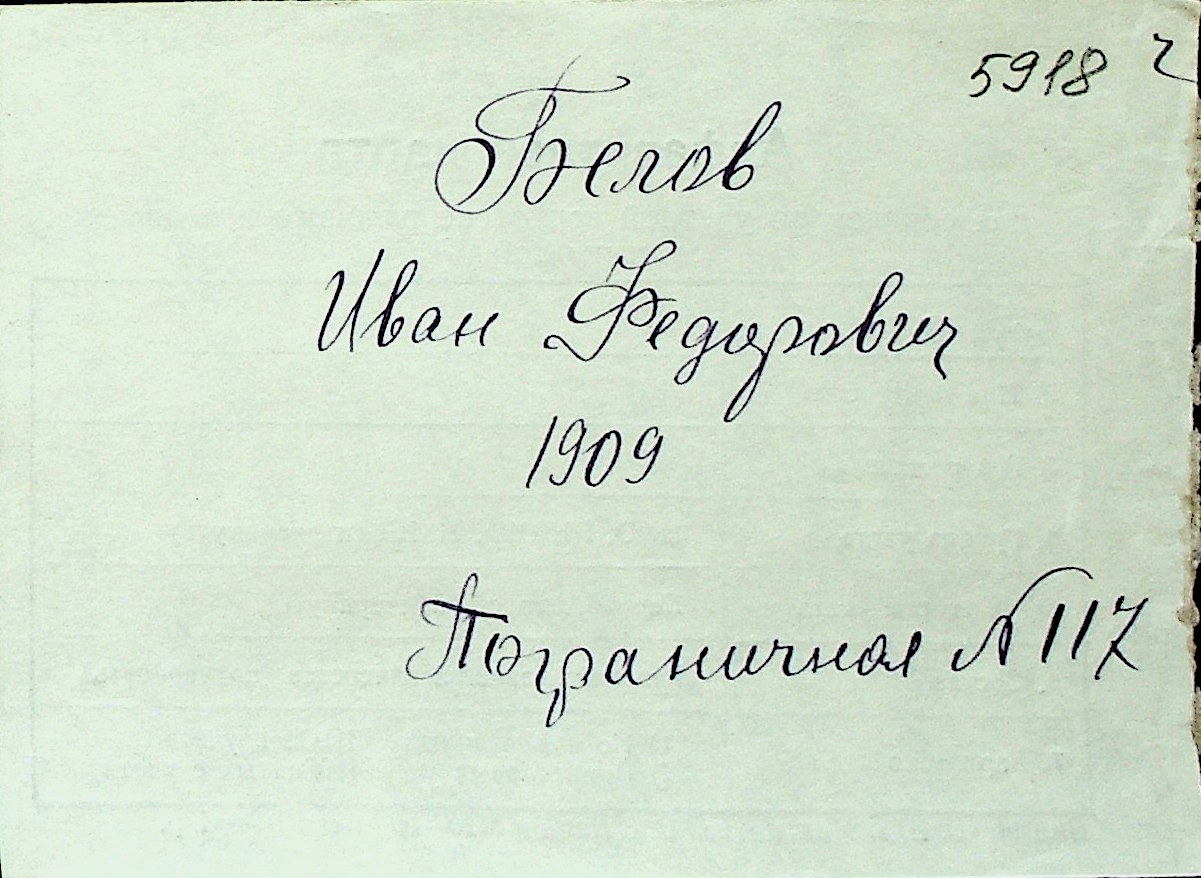 5918 ч
Белов
Иван Федорович
1909
Пограничная № 117